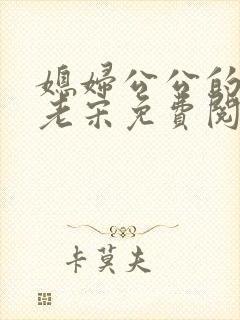 媳妇公公的
老宋免费阅
卡莫夫